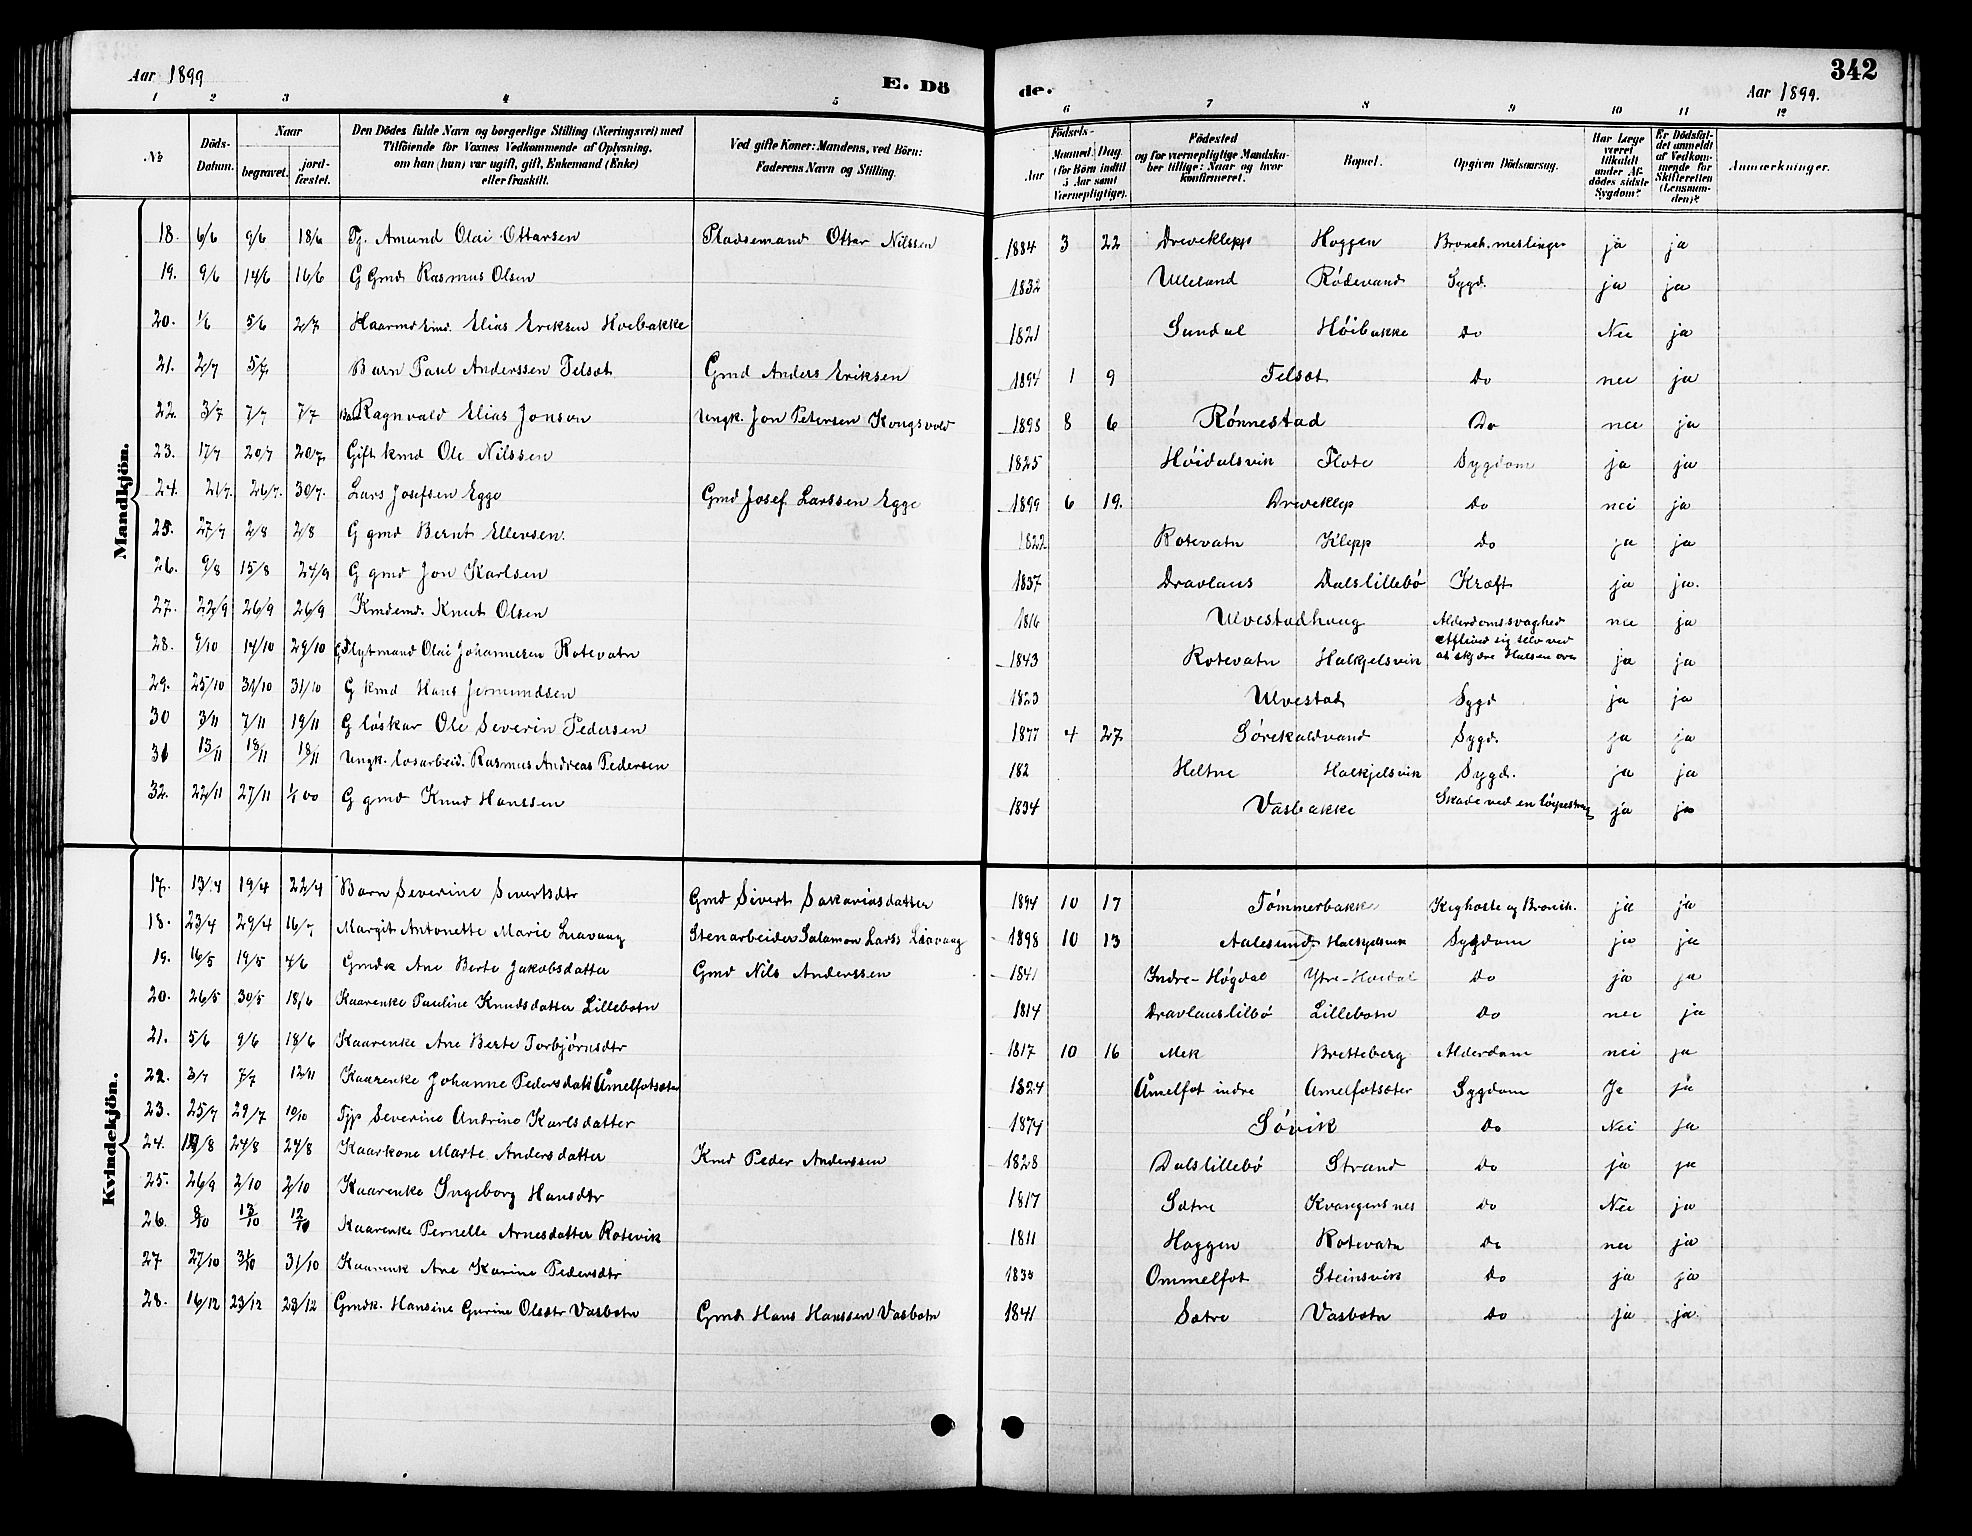 Aar 1899
E. Döde.
342
Aar 1899.
1 2 3 4 5 6 7 8 9 10 11 12
№ Döds-Datum. Naar begravet. jordfæstet. Den Dödes fulde Navn og borgerlige Stilling (Næringsvei) med Tilföiende for Voxnes Vedkommende af Oplysning, om han (hun) var ugift, gift, Enkemand (Enke) eller fraskilt. Ved gifte Koner: Mandens, ved Börn: Faderens Navn og Stilling. Födsels- Aar Maaned. Dag (for Börn indtil 5 Aar samt Værnepligtige). Födested og for værnepligtige Mandskaber tillige: Naar og hvor konfirmeret. Bopæl. Opgiven Dödsaarsag. Har Læge været tilkaldt under Afdödes sidste Sygdom? Er Dödsfaldet anmeldt af Vedkommende for Skifteretten (Lensmanden)? Anmærkninger.
Mandkjön.
18. 6/6 9/6 18/6 Tj. Amund Olai Ottarsen Pladsemand Ottar Nilssen 1884 3 22 Driveklepp Hoggen Bronch. meslinger ja ja
19. 9/6 14/6 16/6 G Gmd Rasmus Olsen 1832 Ulleland Rødevand Sygd. ja ja
20. 1/6 5/6 2/7 Kaarmd Emd. Elias Eriksen Hoebakke 1821 Sundal Høibakke Do Nei ja
21. 2/7 5/7 Barn Paul Anderssen Felsæt Gmd Anders Eriksen 1894 1 9 Felsæt Do nei ja
22. 3/7 7/7 7/7 Barn Ragnvald Elias Jonson Ungk. Jon Petersen Kongsvold 1898 8 6 Rønnestad Do nei ja
23. 17/7 20/7 20/7 Gift kmd Ole Nilssen 1825 Høidalsvik Flote Sygdom ja ja
24. 21/7. 26/7. 30/7. Lars Josefsen Egge Gmd Josef Larssen Egge 1899 6 19. Driveklep Do nei ja
25. 27/7 2/8 2/8 G gmd Bernt Ellevsen. 1822 Rotevatn Klepp Do ja ja
26. 9/8 15/8 24/9 G gmd Jon Karlsen 1837 Dravlaus Dalslillebø Kræft ja ja.
27. 22/9 26/9 26/9 Kmdemd. Knut Olsen 1816 Ulvestadhaug Alderdomssvaghed nei ja
28. 9/10 14/10 29/10 G Flytmand Olai Johannesen Rotevatn 1843 Rotevatn Halkjelsvik Aflived sig selv ved at skjære Halsen over ja ja
29. 25/10 31/10 31/10 G kmd Hans Jermundsen 1823 Ulvestad Sygd ja ja
30 3/11 7/11 19/11 G løskar Ole Severin Pedersen 1877 4 27. Sørekaldvand Sygd. ja ja
31 13/11 18/11 18/11 Ungk. losarbeid. Rasmus Andreas Pedersen 182 Heltne Halkjelsvik Sygd. ja ja
32. 22/11 27/11 1/1 00 G gmd Knud Hanssen 1834 Vasbakke Skade ved en løipestræng ja ja
Kvindekjön.
17. 13/4 19/4 22/4 Barn Severine Sivertsdtr Gmd Sivert Sakariasdatter 1894 10 17 Tømmerbakke Kighoste og Bronch. ja ja
18. 23/4 29/4 16/7 Margit Antonette Marie Liavaag Stenarbeider Salamon Larss Liavaag 1898 10 13 Aalesund Halkjelsvik Sygdom ja ja
19. 16/5 19/5 4/6 Gmdk Ane Berte Jakobsdatter Gmd Nils Anderssen 1841 Indre-Høgdal Ytre-Høidal Do ja ja
20. 26/5 30/5 18/6 Kaarenke Pauline Knudsdatter Lillebotn 1814 Dravlauslilbø Lillebotn Do nei ja
21. 5/6 9/6 18/6 Kaarenke Ane Berte Torbjørnsdtr 1817 10 16 Mek Bretteberg Alderdom nei ja
22. 3/7 7/7 12/11 Kaarenke Johanne Pedersdatr Åmelfotsæter 1824 Åmelfot indre Amelfotsæter Sygdom Ja ja
23. 25/7 29/7 10/10 Tjp Severine Andrine Karlsdatter 1874 Søvik Do Nei ja
24. 19/8 24/8 24/8 Kaarkone Marte Andersdatter Kmd Peder Anderssen 1828 Dalslillebø Strand Do ja ja
25. 26/9 2/10 2/10 Kaarenke Ingeborg Hansdtr 1817 Sætre Kvangensnes Do Nei ja
26. 8/10 12/10 12/10 Kaarenke Pernelle Arnesdatter Rotevik 1811 Hoggen Rotevatn Do nei ja
27 27/10 31/10 31/10 Kaarenk Ane Karine Pedersdtr 1835 Ommelfot Steinsvik Do ja ja
28. 16/12 23/12 23/12 Gmdk. Hansine Gurine Olsdtr Vasbotn Gmd Hans Hanssen Vasbotn 1841 Sætre Vasbotn Do ja ja.